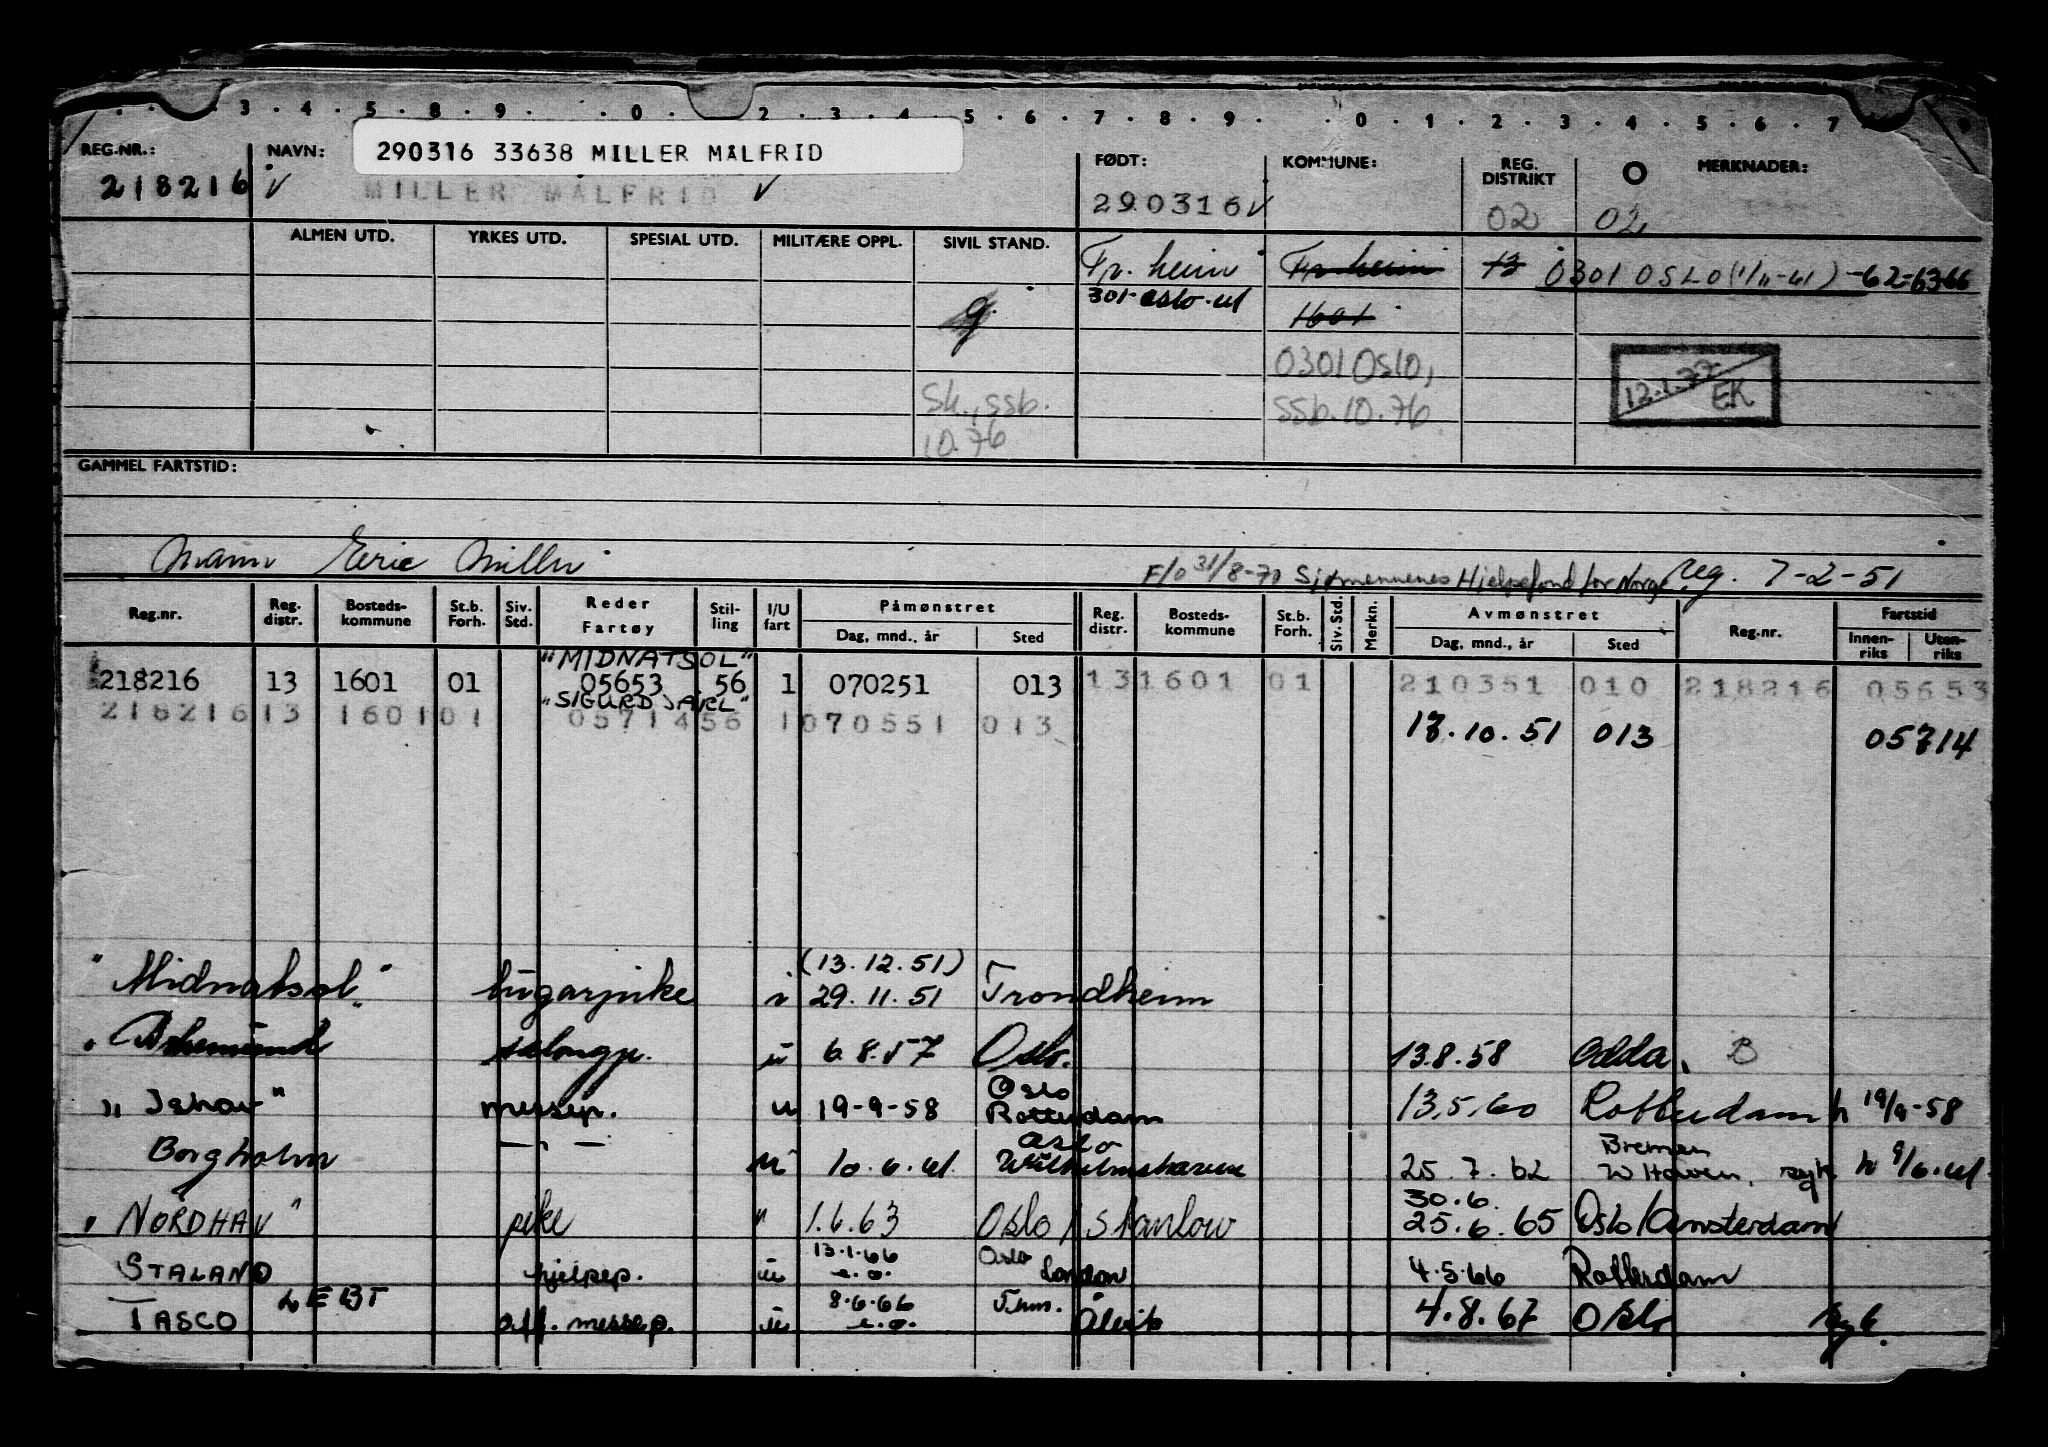 3 4 5 8 9 0 2 3 4 5 6 7 8 9 0 1 2 3 4 5 6 7 9
REG.NR.: NAVN: 290316 33638 MILLER MALFRID FØDT: KOMMUNE: REG. DISTRIKT O MERKNADER:
218216 MILLER MALFRID 290316 02 02
ALMEN UTD. YRKES UTD. SPESIAL UTD. MILITÆRE OPPL. SIVIL STAND.
Tr. heim Tr. heim 13 0301 OSLO (1/11-61) -62-63-66
g. 301-Oslo-61 1601
0301 Oslo,
Sk., ssb. ssb. 10.76 12.1.77 EK
10.76
GAMMEL FARTSTID:
Mann Eric Miller F/o 31/8-70 Sjømennenes Hjelpefond for Norge reg. 7-2-51
Reg.nr. Reg. distr. Bosteds-kommune St.b. Forh. Siv. Std. Reder Fartøy Stil-ling I/U fart Påmønstret Dag, mnd., år Sted Reg. distr. Bosteds-kommune St.b. Forh. Siv. Std. Merkn. Avmønstret Dag, mnd., år Sted Reg.nr. Fartstid Innen-riks Uten-riks
"MIDNATSOL"
218216 13 1601 01 05653 56 1 070251 013 13 1601 01 210351 010 218216 05653
"SIGURD JARL"
218216 13 1601 01 05714 56 1 070551 013 17.10.51 013 05714
(13.12.51)
"Midnatsol" lugarpike i 29.11.51 Trondheim
salongp. u 6.8.57 Oslo. 13.8.58 Odda, B
Oslo
messep. u 19-9-58 Rotterdam 13.5.60 Rotterdam h 19/9-58
Oslo Bremen
Borgholm — " — u 10.6.61 Wilhelmshaven 25.7.62 W Haven, syk h 9/6-61
30.6.
"NORDHAV" pike " 1.6.63 Oslo / Stanlow 25.6.65 Oslo/Amsterdam
13.1.66 Oslo
STALAND hjelpep. u e.o. London 4.5.66 Rotterdam
LEBT 8.6.66 T.hm.
TASCO off. messep. u e.o. Ålvik 4.8.67 Oslo syk.